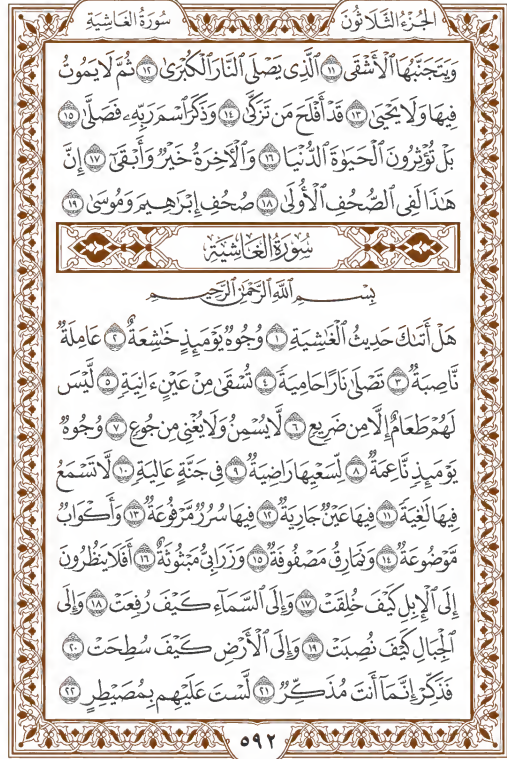 الجُزْءُ الثَّلَاثُونَ سُورَةُ الغَاشِيَةِ
وَيَتَجَنَّبُهَا ٱلْأَشْقَى ١١ ٱلَّذِى يَصْلَى ٱلنَّارَ ٱلْكُبْرَىٰ ١٢ ثُمَّ لَا يَمُوتُ
فِيهَا وَلَا يَحْيَىٰ ١٣ قَدْ أَفْلَحَ مَن تَزَكَّىٰ ١٤ وَذَكَرَ ٱسْمَ رَبِّهِۦ فَصَلَّىٰ ١٥
بَلْ تُؤْثِرُونَ ٱلْحَيَوٰةَ ٱلدُّنْيَا ١٦ وَٱلْأَخِرَةُ خَيْرٌ وَأَبْقَىٰٓ ١٧ إِنَّ
هَٰذَا لَفِى ٱلصُّحُفِ ٱلْأُولَىٰ ١٨ صُحُفِ إِبْرَٰهِيمَ وَمُوسَىٰ ١٩
سُورَةُ الغَاشِيَةِ
بِسْمِ ٱللَّهِ ٱلرَّحْمَٰنِ ٱلرَّحِيمِ
هَلْ أَتَىٰكَ حَدِيثُ ٱلْغَٰشِيَةِ ١ وُجُوهٌ يَوْمَئِذٍ خَٰشِعَةٌ ٢ عَامِلَةٌ
نَّاصِبَةٌ ٣ تَصْلَىٰ نَارًا حَامِيَةً ٤ تُسْقَىٰ مِنْ عَيْنٍ ءَانِيَةٍ ٥ لَّيْسَ
لَهُمْ طَعَامٌ إِلَّا مِن ضَرِيعٍ ٦ لَّا يُسْمِنُ وَلَا يُغْنِى مِن جُوعٍ ٧ وُجُوهٌ
يَوْمَئِذٍ نَّاعِمَةٌ ٨ لِّسَعْيِهَا رَاضِيَةٌ ٩ فِى جَنَّةٍ عَالِيَةٍ ١٠ لَّا تَسْمَعُ
فِيهَا لَٰغِيَةً ١١ فِيهَا عَيْنٌ جَارِيَةٌ ١٢ فِيهَا سُرُرٌ مَّرْفُوعَةٌ ١٣ وَأَكْوَابٌ
مَّوْضُوعَةٌ ١٤ وَنَمَارِقُ مَصْفُوفَةٌ ١٥ وَزَرَابِىُّ مَبْثُوثَةٌ ١٦ أَفَلَا يَنظُرُونَ
إِلَى ٱلْإِبِلِ كَيْفَ خُلِقَتْ ١٧ وَإِلَى ٱلسَّمَآءِ كَيْفَ رُفِعَتْ ١٨ وَإِلَى
ٱلْجِبَالِ كَيْفَ نُصِبَتْ ١٩ وَإِلَى ٱلْأَرْضِ كَيْفَ سُطِحَتْ ٢٠
فَذَكِّرْ إِنَّمَآ أَنتَ مُذَكِّرٌ ٢١ لَّسْتَ عَلَيْهِم بِمُصَيْطِرٍ ٢٢
٥٩٢